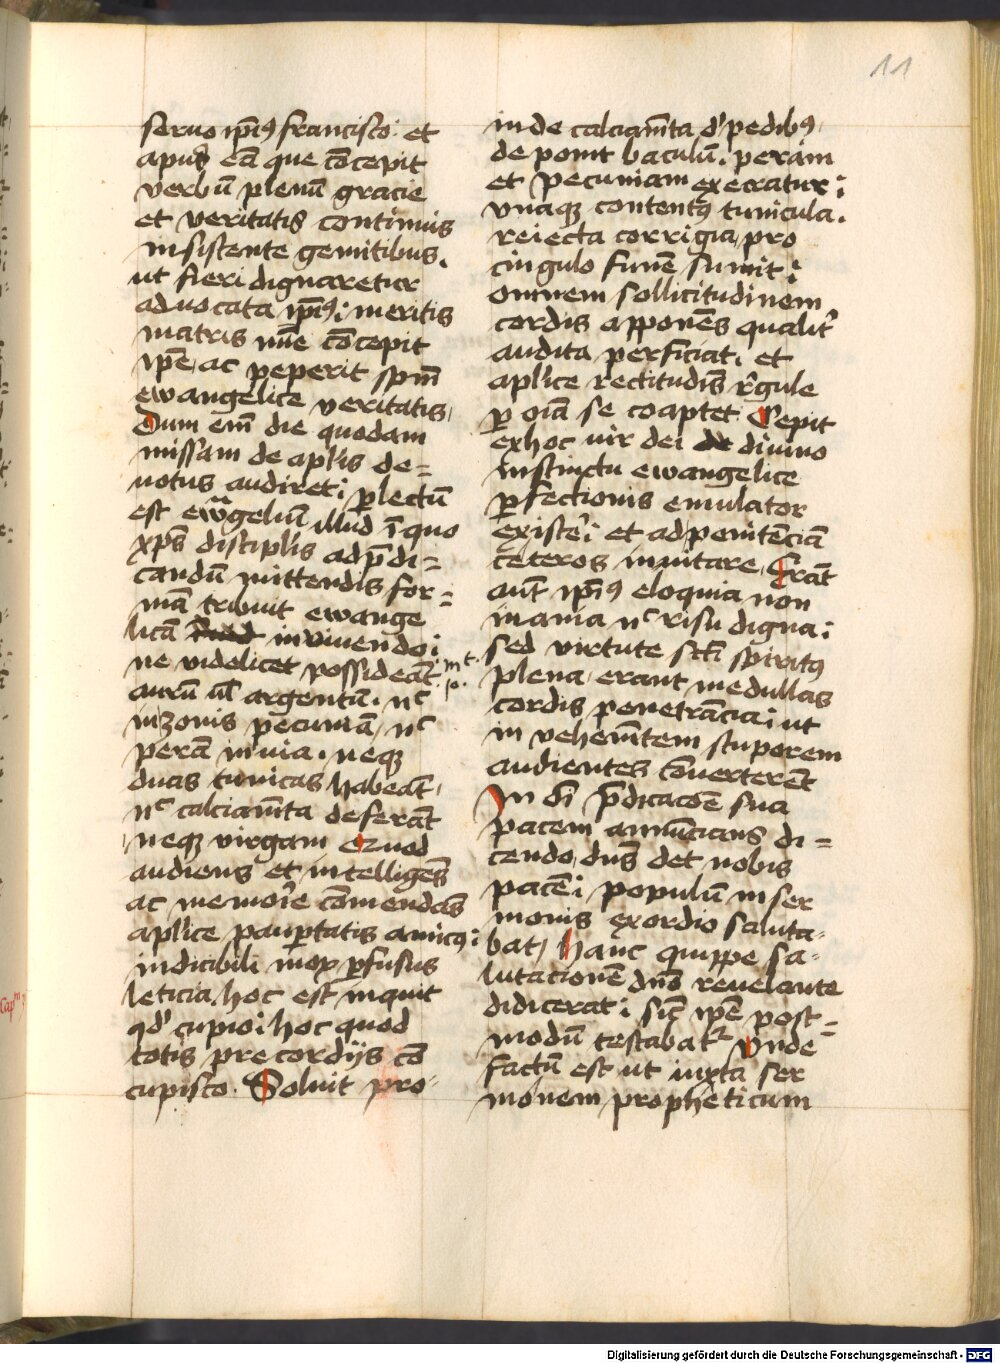 11
seruo ip̄iꝰ francisco. et
apud eā que cōcepit
verbū plenū gracie
et veritatis continuis
insistente gemitibus.
ut fieri dignaretur
aduocata ip̄iꝰ; meritis
matris m̄ie cōcepit
ip̄e, ac peperit sp̄m
ewangelice veritatis,
Dum em̄ die quodam
missam de aplīs de=
uotus audiret; ꝑlectū
est ewāgeliū illud ī quo
xp̄s discipl̄is ad p̄di=
candū mittendis for=
mā tribuit ewange
licā in viuendo;
ne videlicet possideāt
aurū ul̄ argentū. nc
in zonis pecuniā, nc
perā in via. neqꝫ
duas tunicas habeāt,
nc calciam̄ta deferāt
neqꝫ virgam Quod
audiens et intelligēs
ac memorīe cōmendās
apl̄ice pauꝑtatis amicꝰ;
indicibili mox ꝑfusus
leticia, hoc est inquit
qd' cupio; hoc quod
totis precordijs cō
cupisco. Soluit pro-
Capm 3
mt.
10.
inde calciam̄ta d' pedibꝰ,
deponit baculū. peram
et pecuniam execratur;
vnaqꝫ contentꝰ tunicula.
reiecta corrigia, pro
cingulo funē sumit;
omnem sollicitudinem
cordis apponēs qualit'
audita perficiat. et
apl̄ice rectitudīs r̄gule
ꝑ oīa se coaptet. Cepit
ex hoc vir dei diuino
instinctu ewangelice
ꝑfectionis emulator
existe'; et ad penitēciā
ceteros inuitare. Erāt
aūt ip̄iꝰ eloquia non
inania nc risu digna;
sed virtute sc̄ti spiritꝰ
plena, erant medullas
cordis penetrācia; ut
in vehem̄tem stuporem
audientes cōuerterēt
In oī p̄dicacōe sua
pacem annūcians di=
cendo, dn̄s det nobis
pacē; populū in ser
monis exordio saluta-
bat, hanc quippe sa-
lutationē dn̄o reuelante
didicerat; sic̄ ip̄e post=
modū testabat'. Vnde
factū est ut iuxta ser
monem propheticum
Digitalisierung gefördert durch die Deutsche Forschungsgemeinschaft - DFG